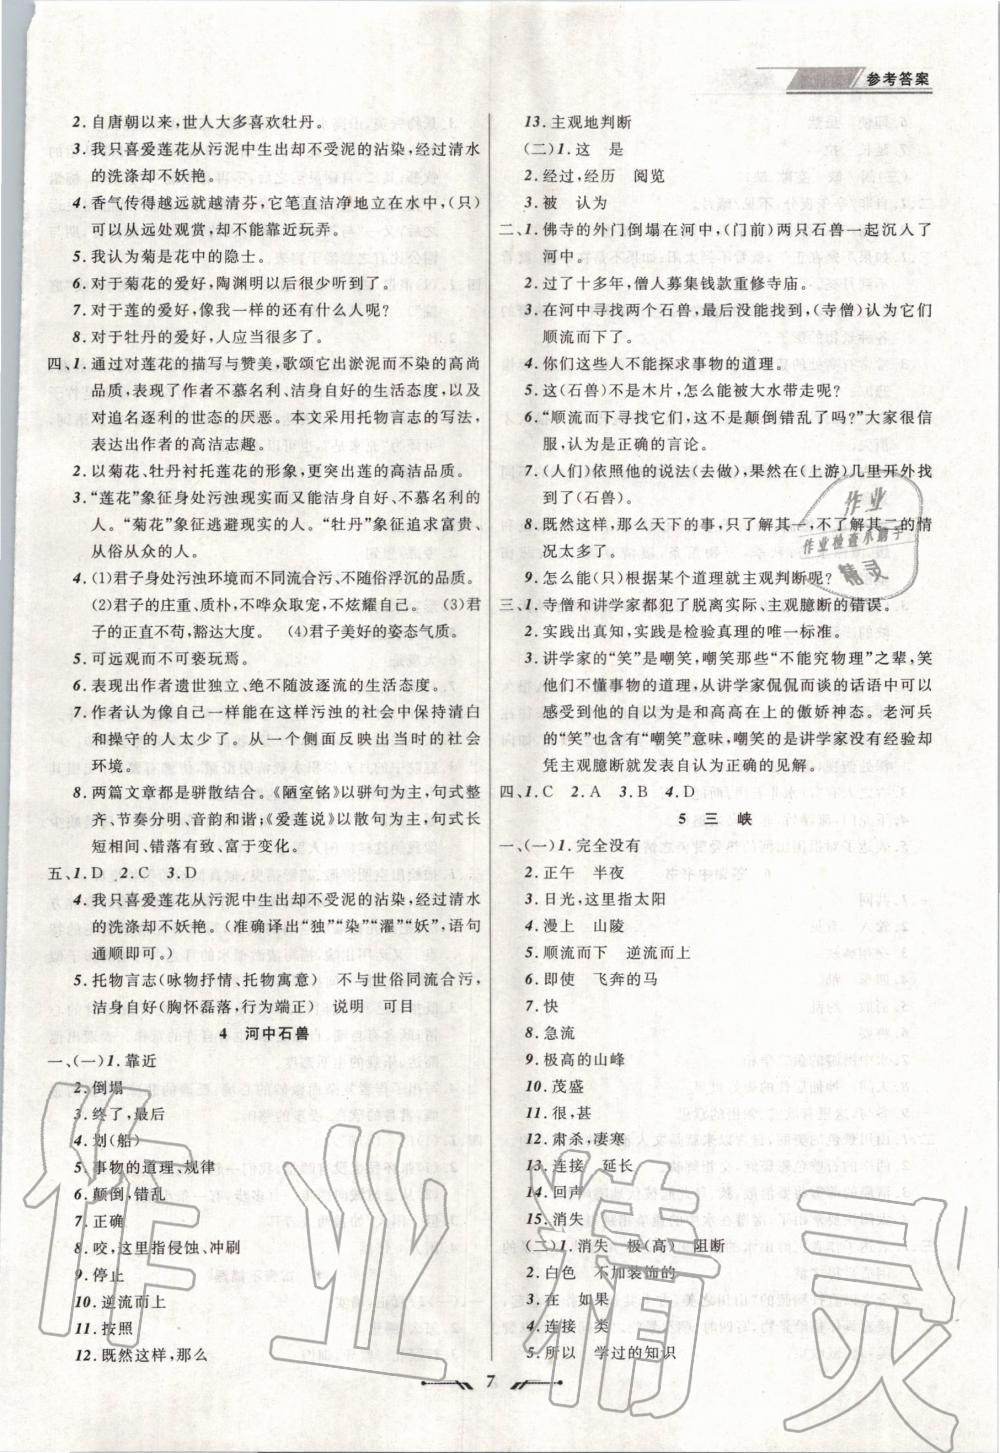 参考答案
2. 自唐朝以来,世人大多喜欢牡丹。
3. 我只喜爱莲花从污泥中生出却不受泥的沾染,经过清水
的洗涤却不妖艳。
4. 香气传得越远就越清芬,它笔直洁净地立在水中,(只)
可以从远处观赏,却不能靠近玩弄。
5. 我认为菊是花中的隐士。
6. 对于菊花的爱好,陶渊明以后很少听到了。
7. 对于莲的爱好,像我一样的还有什么人呢?
8. 对于牡丹的爱好,人应当很多了。
四、1. 通过对莲花的描写与赞美,歌颂它出淤泥而不染的高尚
品质,表现了作者不慕名利、洁身自好的生活态度,以及
对追名逐利的世态的厌恶。本文采用托物言志的写法,
表达出作者的高洁志趣。
2. 以菊花、牡丹衬托莲花的形象,更突出莲的高洁品质。
3. “莲花”象征身处污浊现实而又能洁身自好、不慕名利的
人。“菊花”象征逃避现实的人。“牡丹”象征追求富贵、
从俗从众的人。
4. (1)君子身处污浊环境而不同流合污、不随俗浮沉的品质。
(2)君子的庄重、质朴,不哗众取宠,不炫耀自己。 (3)君
子的正直不苟,豁达大度。 (4)君子美好的姿态气质。
5. 可远观而不可亵玩焉。
6. 表现出作者遗世独立、绝不随波逐流的生活态度。
7. 作者认为像自己一样能在这样污浊的社会中保持清白
和操守的人太少了。从一个侧面反映出当时的社会
环境。
8. 两篇文章都是骈散结合。《陋室铭》以骈句为主,句式整
齐、节奏分明、音韵和谐;《爱莲说》以散句为主,句式长
短相间、错落有致、富于变化。
五、1. D 2. C 3. D
4. 我只喜爱莲花从污泥中生出却不受泥的沾染,经过清水
的洗涤却不妖艳。(准确译出“独”“染”“濯”“妖”,语句
通顺即可。)
5. 托物言志(咏物抒情、托物寓意) 不与世俗同流合污,
洁身自好(胸怀磊落,行为端正) 说明 可目
4 河中石兽
一、(一)1. 靠近
2. 倒塌
3. 终了,最后
4. 划(船)
5. 事物的道理、规律
6. 颠倒,错乱
7. 正确
8. 咬,这里指侵蚀、冲刷
9. 停止
10. 逆流而上
11. 按照
12. 既然这样,那么
13. 主观地判断
(二)1. 这 是
2. 经过,经历 阅览
3. 被 认为
二、1. 佛寺的外门倒塌在河中,(门前)两只石兽一起沉入了
河中。
2. 过了十多年,僧人募集钱款重修寺庙。
3. 在河中寻找两个石兽,最终没有找到,(寺僧)认为它们
顺流而下了。
4. 你们这些人不能探求事物的道理。
5. 这(石兽)不是木片,怎么能被大水带走呢?
6. “顺流而下寻找它们,这不是颠倒错乱了吗?”大家很信
服,认为是正确的言论。
7. (人们)依照他的说法(去做),果然在(上游)几里开外找
到了(石兽)。
8. 既然这样,那么天下的事,只了解其一,不了解其二的情
况太多了。
9. 怎么能(只)根据某个道理就主观判断呢?
三、1. 寺僧和讲学家都犯了脱离实际、主观臆断的错误。
2. 实践出真知,实践是检验真理的唯一标准。
3. 讲学家的“笑”是嘲笑,嘲笑那些“不能究物理”之辈,笑
他们不懂事物的规律,从讲学家侃侃而谈的话语中可以
感受到他的自以为是和高高在上的傲娇神态。老河兵
的“笑”也含有“嘲笑”意味,嘲笑的是讲学家没有经验却
凭主观臆断就发表自认为正确的见解。
四、1. C 2. A 3. B 4. D
5 三 峡
一、(一)1. 完全没有
2. 正午 半夜
3. 日光,这里指太阳
4. 漫上 山陵
5. 顺流而下 逆流而上
6. 即使 飞奔的马
7. 快
8. 急流
9. 极高的山峰
10. 茂盛
11. 很,甚
12. 肃杀,凄寒
13. 连接 延长
14. 回声
15. 消失
(二)1. 消失 极(高) 阻断
2. 白色 不加装饰的
3. 在 如果
4. 连接 类
5. 所以 学过的知识
7
作业
作业检查小助手
精灵
作业精灵